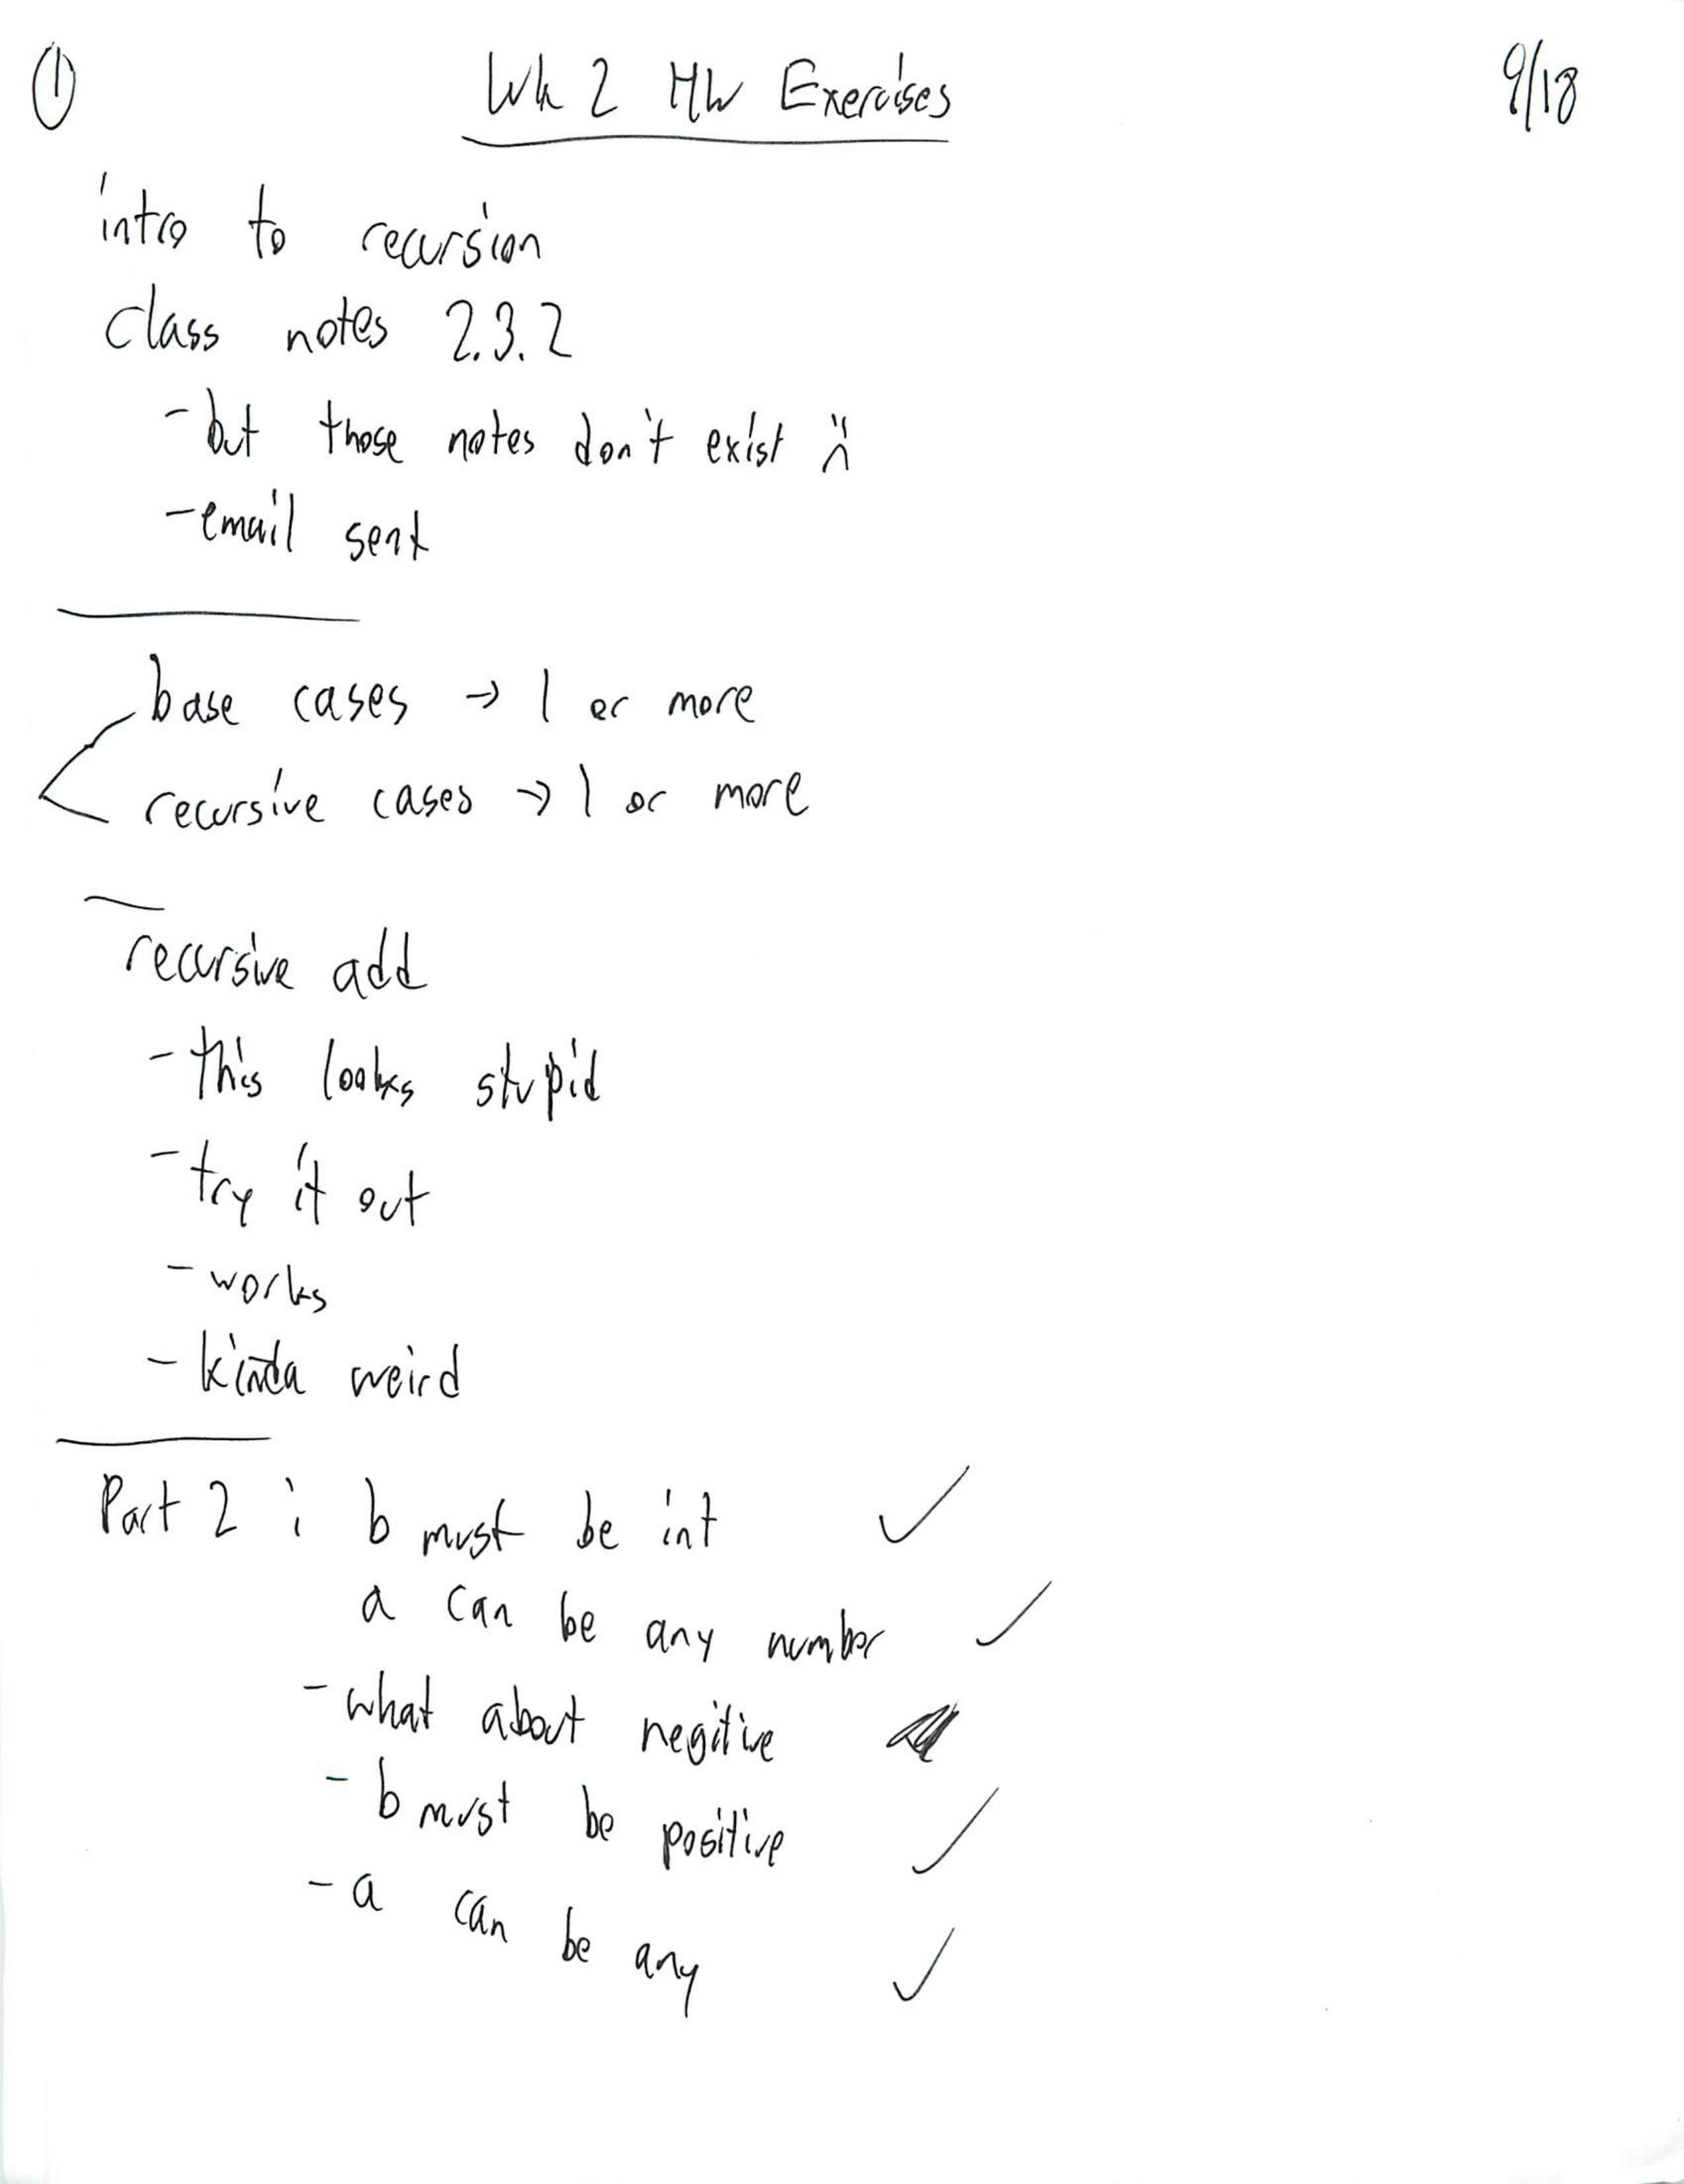 ① Wk 2 HW Exercises 9/18
intro to recursion
class notes 2.3.2
- but those notes don't exist :(
- email sent
base cases → 1 or more
recursive cases → 1 or more
recursive add
- this looks stupid
- try it out
- works
- kinda weird
Part 2 : b must be int ✓
a can be any number ✓
- what about negitive
- b must be positive ✓
- a can be any ✓